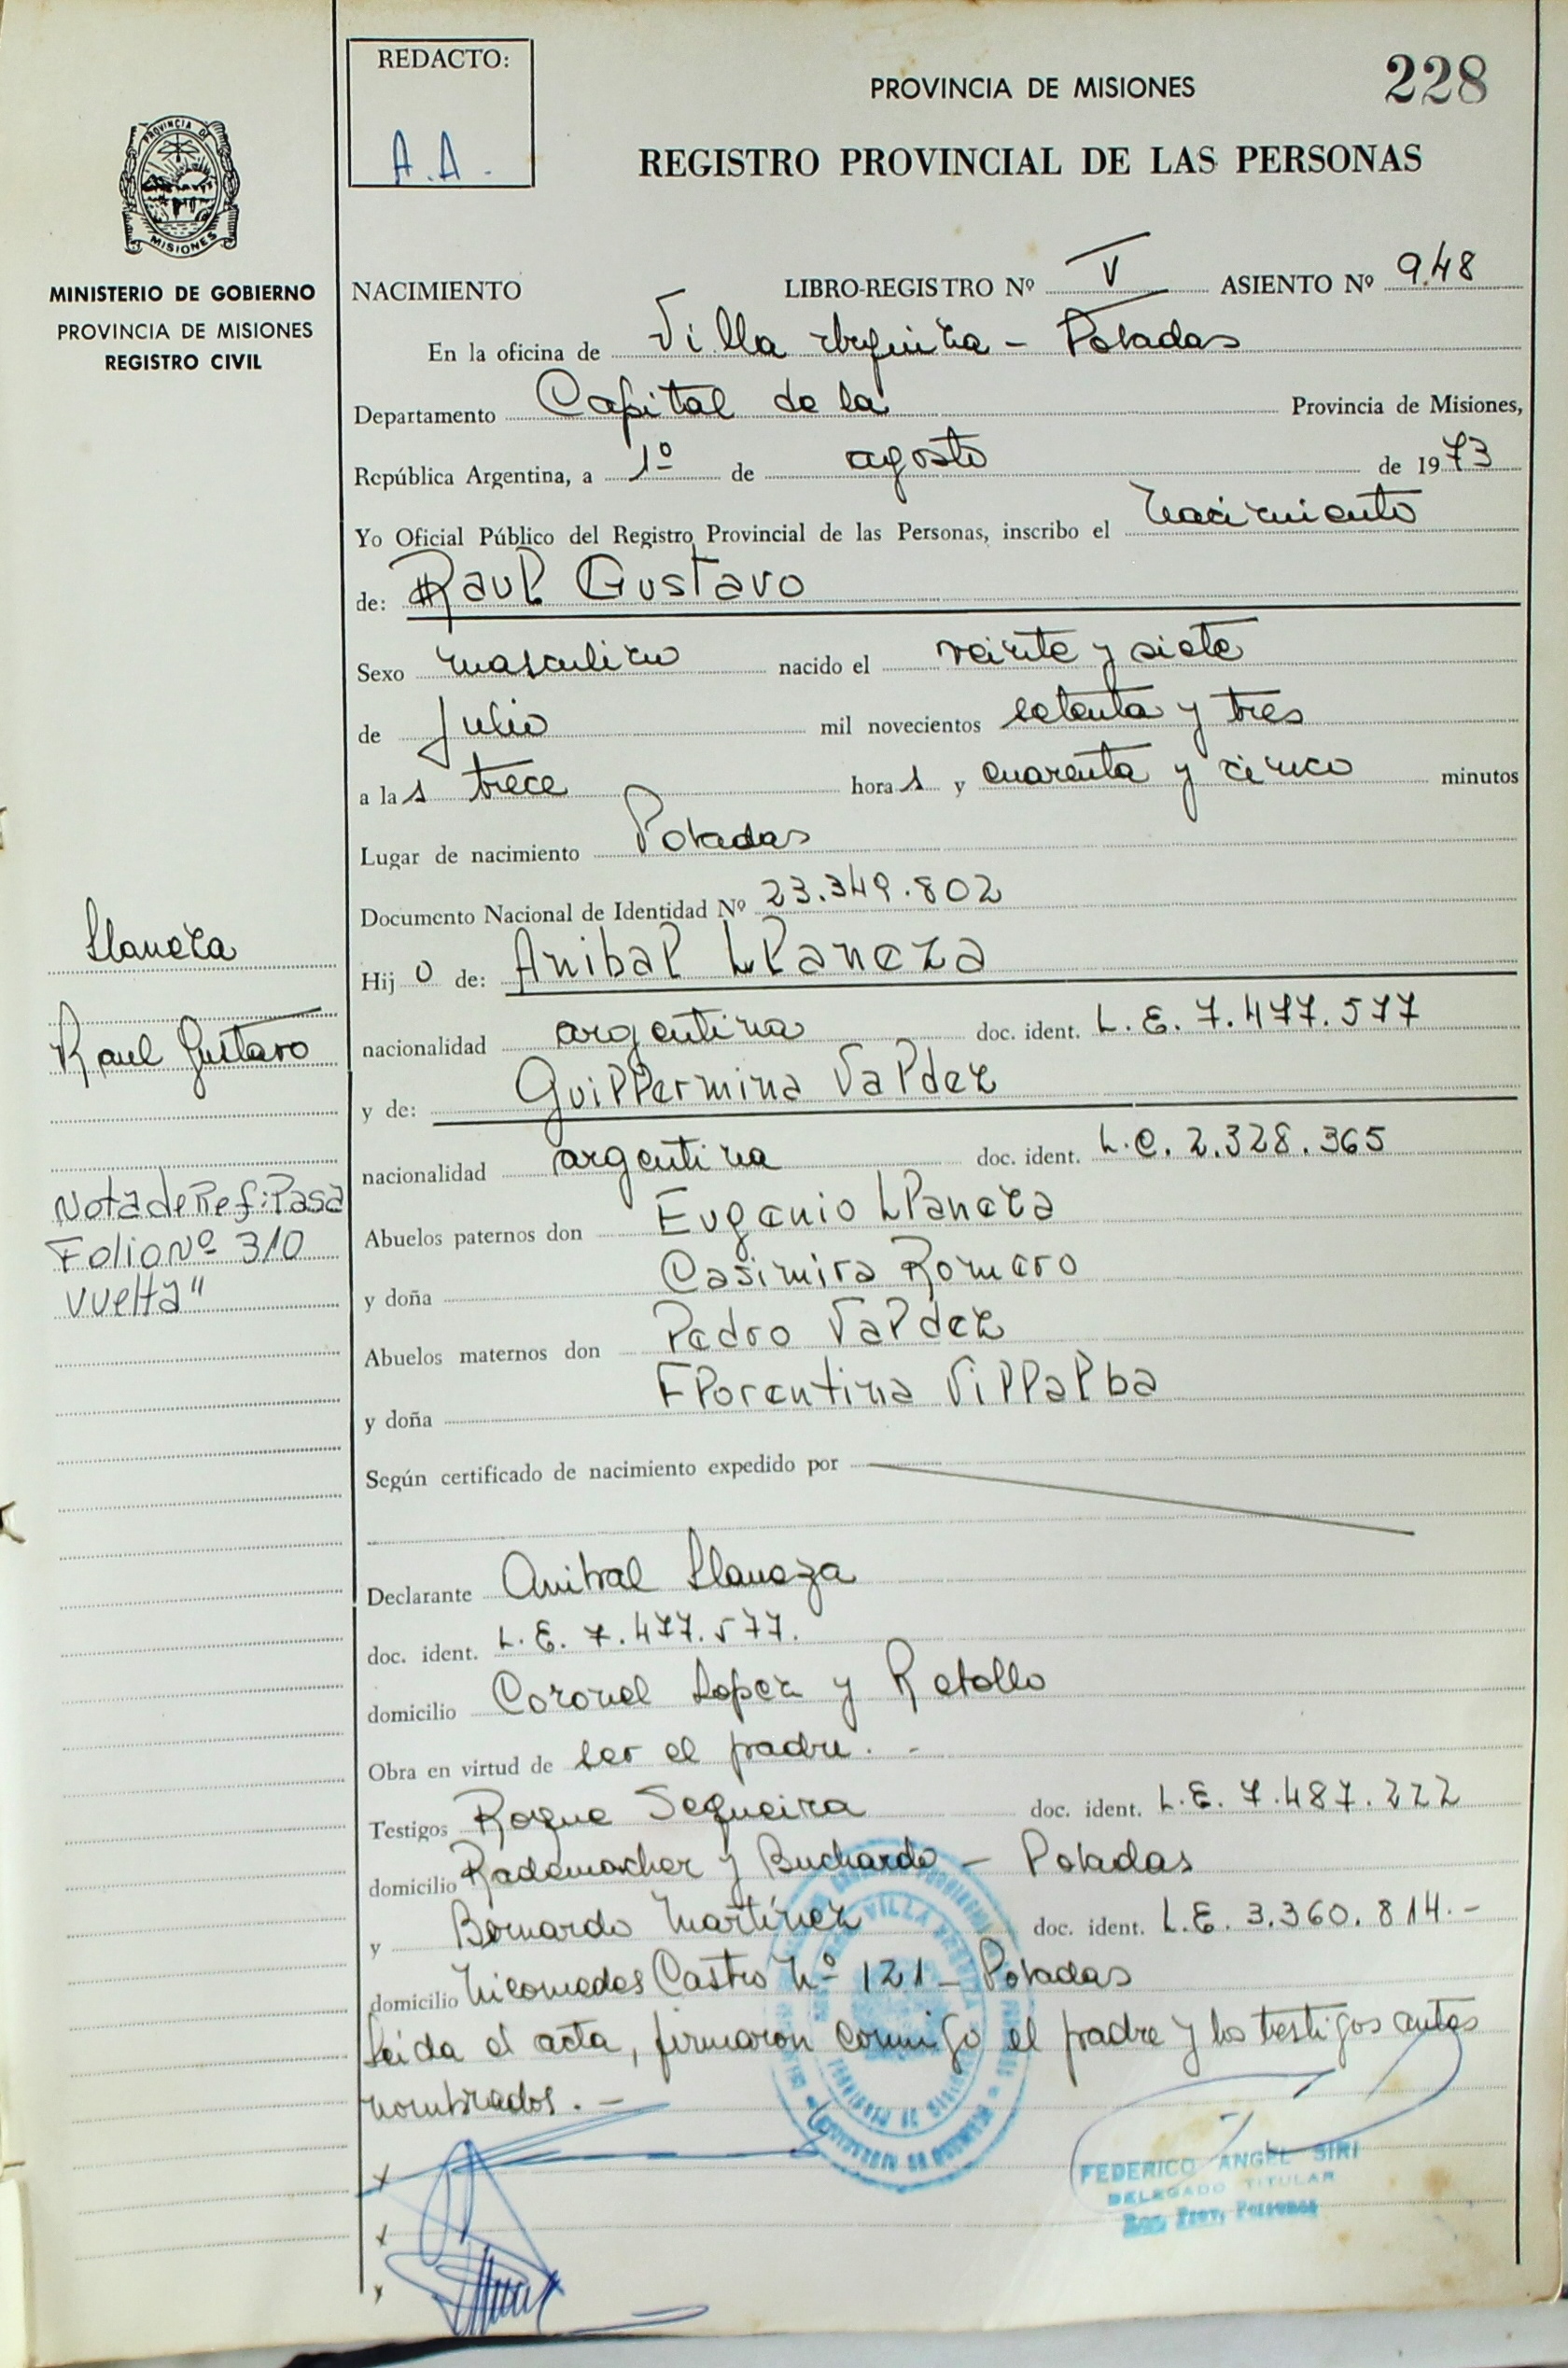 REDACTO:
A.A.
PROVINCIA DE MISIONES
228
REGISTRO PROVINCIAL DE LAS PERSONAS
PROVINCIA DE
MISIONES
MINISTERIO DE GOBIERNO
PROVINCIA DE MISIONES
REGISTRO CIVIL
NACIMIENTO LIBRO-REGISTRO Nº V ASIENTO Nº 948
En la oficina de Villa Urquiza - Posadas
Departamento Capital de la Provincia de Misiones,
República Argentina, a 1º de agosto de 1973
Yo Oficial Público del Registro Provincial de las Personas, inscribo el nacimiento
de: Raul Gustavo
Sexo masculino nacido el veinte y siete
de Julio mil novecientos setenta y tres
a las trece horas y cuarenta y cinco minutos
Lugar de nacimiento Posadas
Documento Nacional de Identidad Nº 23.349.802
Hijo de: Anibal Llaneza
nacionalidad argentina doc. ident. L.E. 7.477.577
y de: Guillermina Valdez
nacionalidad argentina doc. ident. L.C. 2.328.365
Abuelos paternos don Eugenio Llaneza
y doña Casimira Romero
Abuelos maternos don Pedro Valdez
y doña Florentina Villalba
Según certificado de nacimiento expedido por
Declarante Anibal Llaneza
doc. ident. L.E. 7.477.577.
domicilio Coronel Lopez y
Obra en virtud de ser el padre. -
Testigos Roque Sequeira doc. ident. L.E. 7.487.222
domicilio Rademacher y Buchardo - Posadas
y Bernardo Martínez doc. ident. L.E. 3.360.814.-
domicilio Nicomedes Castro Nº 121 - Posadas
Leida el acta, firmaron conmigo el padre y los testigos antes
nombrados. -
Llaneza
Raul Gustavo
Nota de Ref: Pasa
Folio Nº 310
vuelta"
FEDERICO ANGEL SIRI
DELEGADO TITULAR
Reg. Prov. Personas